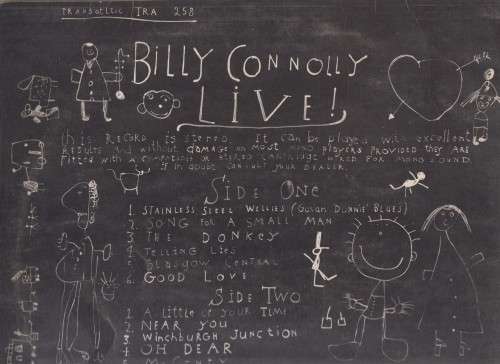 TRANSATLANTIC TRA 258
BILLY CONNOLLY
LIVE!
this RECORD is stereo. It can be played with excellent
RESULTS and without damage on MOST MONO PLAYERS PROVIDED they ARE
fitted with a compatible or stereo cartridge wired FOR MONO SOUND.
If in doubt consult your DEALER.
SIDE ONE
1. STAINLESS STEEL WELLIES (Govan Dunnie Blues)
2. SONG FOR A SMALL MAN
3. THE DONKEY
4. Telling Lies
5. Glasgow Central
6. GOOD LOVE
SIDE TWO
1 A little of your TIME
2 NEAR YOU
3 WINCHBURGH JUNCTION
4 OH DEAR